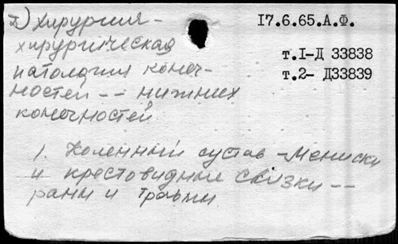 2) Хирургия -
17.6.65.А.Ф.
хирургическая
патология конеч-
ностей -- нижних
конечностей
т.1-Д 33838
т.2- Д33839
1. Коленный сустав - Мениски
и крестовидные связки --
раны и травмы